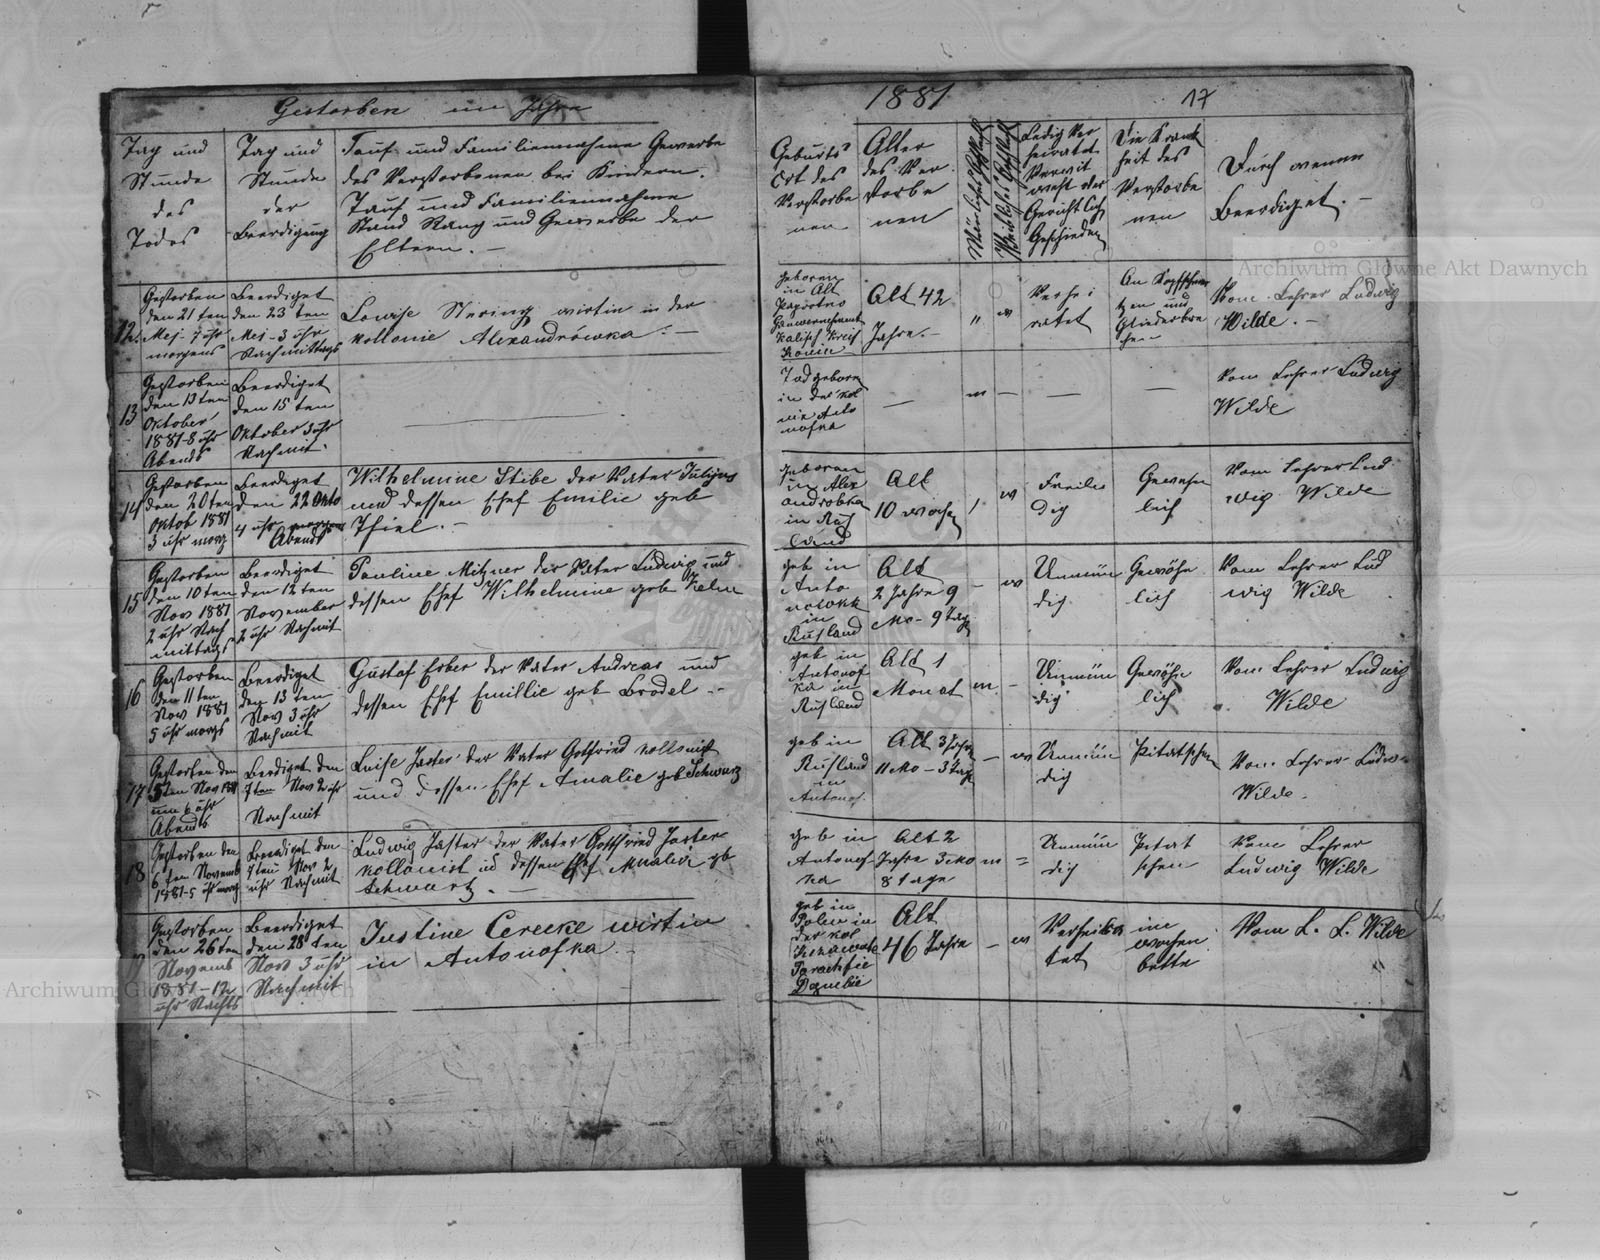 Gestorben im Jahre
1881
17
Tag und
Stunde
des
Todes
Tag und
Stunde
der
Beerdigung
Tauf und Familiennahme Gewerbe
des Verstorbenen bei Kindern.
Tauf und Familiennahme
Stand Rang und Gewerbe der
Eltern. —
Geburts
Ort des
Verstorbe
nen
Alter
des Ver
storbe
nen
Ledig Ver
heiratet
Verwit
weht oder
Gericht lich
Geschieden
Die Krank
heit des
Verstorbe
nen
Durch wenn
Beerdiget. —
12.
Gestorben
den 21 ten
Mej. 7 uhr
morgens
Beerdiget
den 23 ten
Mej - 3 uhr
Nachmittags
Lowise Nering wirtin in der
kollonie Alexandrówka. —
geboren
in Alt
Gouvernement
Kalisch Kreis
Konin
Alt 42
Jahre. —
"
w
Verhei
ratet
An Kopfschmer
zen und
Vom Lehrer Ludwig
Wilde. —
13
Gestorben
den 13 ten
Oktober
1881-8 uhr
Abends
Beerdiget
den 15 ten
Oktober 3 uhr
Nachmit.
Todgeboren
in der kol
nie Anto
nofka
—
m
—
—
—
Vom Lehrer Ludwig
Wilde
14
Gestorben
den 20 ten
Oktob 1881
3 uhr morg
Beerdiget
den 22 Okto
4 uhr
Abends
Wilhelmine Stibe der Vater Julijus
und dessen Ehef Emilie geb
Thiel. —
geboren
in Alex
androwka
in Rus
land
Alt
10 wochen
w
Gewehn
lich
Vom Lehrer Lud
wig Wilde
15
Gestorben
den 10 ten
Nov 1881
2 uhr Nach
mittags
Beerdiget
den 12 ten
November
2 uhr Nachmit
Pauline Mitzner der Vater Ludwig und
dessen Ehef Wilhelmine geb Kelm
geb in
Anto
in
Rusland
Alt
2 Jahre 9
Mo - 9 Tage
—
w
Unmün
dig
Gewöhn
lich
Vom Lehrer Lud
wig Wilde
16
Gestorben
den 11 ten
Nov 1881
5 uhr morgs
Beerdiget
den 13 ten
Nov 3 uhr
Nachmit
Gustaf Erber der Vater Andreas und
dessen Ehef Emillie geb Brodel —
geb in
Antonof
ka in
Rusland
Alt 1
Monat
m
—
Unmün
dig
Gewöhn
lich
Vom Lehrer Ludwig
Wilde
17
Gestorben den
5ten Nov 1881
um 6 uhr
Abends
Beerdiget den
7ten Nov 2 uhr
Nachmit
Luise Jaster der Vater Gottfried kollonist
und dessen Ehef Amalie geb Schwarz
geb in
Rusland
in
Antonof.
Alt 3 Jahre
11 Mo - 3 Tage
—
w
Unmün
dig
Vom Lehrer Ludwi
Wilde.
18
Gestorben den
6 ten Novemb
1881-5 uhr morg
Beerdiget den
7ten Nov 2
uhr Nachmit
Ludwig Jaster der Vater Gottfried Jaster
kollonist ud dessen Ehef Amalie gb
Schwartz. —
geb in
Antonof
ka
Alt 2
Jahre 3 Mo
8 tage
m
=
Unmün
dig
Vom Lehrer
Ludwig Wilde
19
Gestorben
den 26 ten
Novemb
1881 - 12
uhr Nachts
Beerdiget
den 28 ten
Nov 3 uhr
Nachmit
Justine Cerecke wirtin
in Antonofka. —
geb in
Polen in
der kol
Alt
46 Jahre
—
w
Verheira
tet
im
wochen
bette
Vom L. L. Wilde
Archiwum Główne Akt Dawnych
Archiwum Główne Akt Dawnych